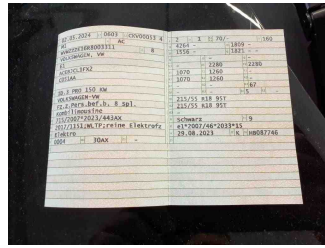 02.05.2024 0603
M1 AC
8
VOLKSWAGEN, VW
E1
EBS1AA
ID.3 PRO 150 KW
VOLKSWAGEN-VW
FZ.Z.Pers.bef.b. 8 Spl.
Kombilimousine
715/2007*2023/443AX
2017/1151;WLTP;reine Elektrofz
Elektro
0004 30AX -
2 1 70/- 160
4264 - 1809 -
1556 - 1821 -
- 2280 2280
1070 1260 -
1070 1260 -
67
5 -
215/55 R18 95T
215/55 R18 95T
schwarz 9
e1*2007/46*2033*15
29.08.2023 K HB087746